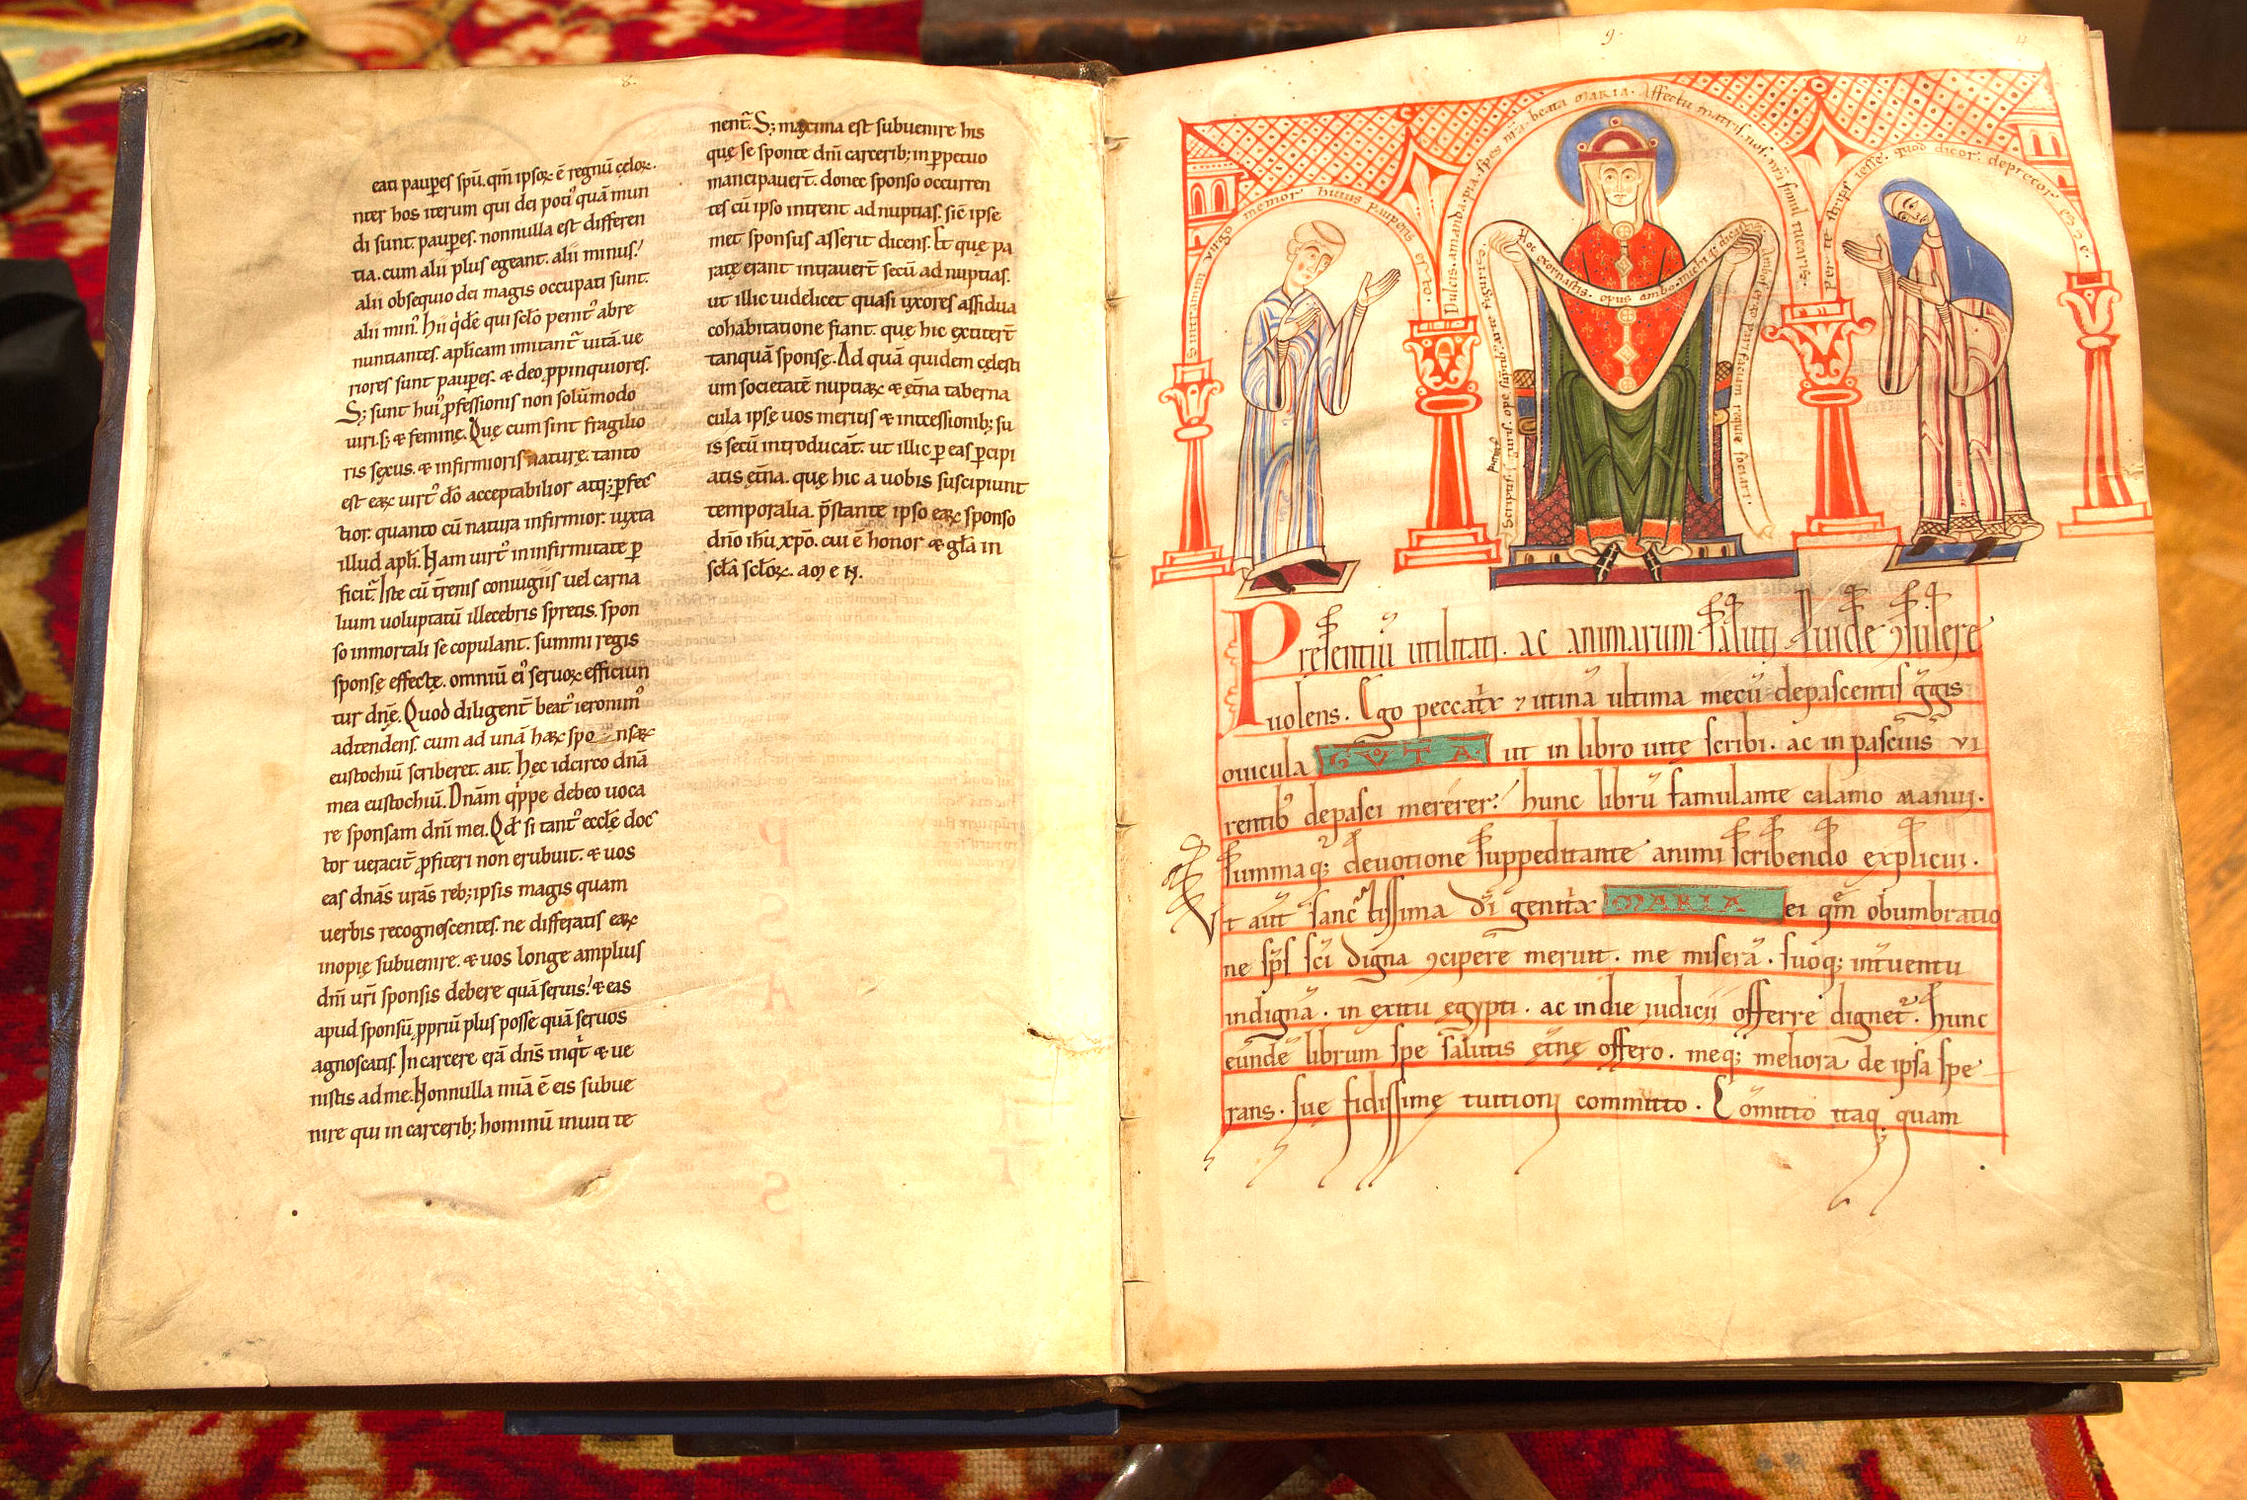 eati paup̄es spū. qm̄ ipsoꝝ ē regnū cęloꝝ.
nter hos iterum qui dei poti' quā mun
di sunt paup̄es. nonnulla est differen
tia. cum alii plus egeant. alii minus.
alii obsequio dei magis occupati sunt.
alii min'. hii q̇dē qui sclo penit' abre
nuntiantes. aplicam imitant̄ uitā. ue
riores sunt paup̄es. & deo ꝓpinquiores.
S; sunt hui' ꝓfessionis non solūmodo
uiri. s; & feminę. Quę cum sint fragilio
ris sexus. & infirmioris naturę. tanto
est eaꝝ uirt' dō acceptabilior atq; ꝑfec
tior. quanto cū natura infirmior. iuxta
illud apłi. Nam uirt' in infirmitate ꝑ
ficit̄. Iste cū t̄renis coniugiis uel carna
lium uoluptatū illecebris spretis. spon
so inmortali se copulant. summi regis
sponsę effectę. omniū ei' seruoꝝ efficiun
tur dn̄ę. Quod diligent̄ beat' ieronim'
adtendens. cum ad unā haꝝ spo nsaꝝ
eustochiū scriberet. ait. Hęc idcirco dn̄ā
mea eustochiū. Dn̄am q̇ppe debeo uoca
re sponsam dn̄i mei. Qđ si tant' ecclę doc
tor ueracit̄ ꝓfiteri non erubuit. & uos
eas dn̄as urās reb; ipsis magis quam
uerbis recognoscentes. ne differatis eaꝝ
inopię subuenire. & uos longe amplius
dn̄i urī sponsis debere quā seruis. & eas
apud sponsū ꝓpriū plus posse quā seruos
agnoscatis. In carcere erā dn̄s inqt̄ & ue
nistis ad me. Nonnulla miā ē eis subue
nire qui in carcerib; hominū inuiti te
nent̄. S; maxima est subuenire his
quę se sponte dn̄i carcerib; in ꝑpetuo
mancipauer̄t. donec sponso occurren
tes cū ipso intrent ad nuptias. sic̄ ipse
met sponsus asserit dicens. Et quę pa
ratę erant intrauer̄t secū ad nuptias.
ut illic uidelicet quasi uxores assidua
cohabitatione fiant. quę hic extiter̄t
tanquā sponsę. Ad quā quidem cęlesti
um societatē nuptiaꝝ & et̄na taberna
cula ipsę uos meritis & int̄cessionib; su
is secū introducāt. ut illic ꝑ eas ꝑcipi
atis et̄na. quę hic a uobis suscipiunt
temporalia. p̄stante ipso eaꝝ sponso
dn̄o ih̄u xp̄o. cui ē honor & gła in
scła scłoꝝ. amen.
9.
Sim tranimi virgo memor huius pauperis
Dulcis amanda pia spes nr̄a beata MARIA. Affectu matris
quod dicor. deprecor
Hoc exornastis opus ambo
Presentiū utilitati. ac animarum saluti ꝓuidē ꝯsulere
uolens. Ego peccatͬx ⁊ utinā ultima mecū depascentis gͤgis
ouicula GVTA ut in libro uitę scribi. ac in pascuis vi
rentib' depasci mererer. hunc librū famulante calamo manui.
summaq; deuotione suppeditante animi scribendo explicui.
Vt aut̄ sanctissima dī genitͬx MARIA ei qm̄ obumbratio
ne sp̄s scī digna ꝯcipere meruit. me miserā. suoq; int̄uentu
indignā. in exitu egypti. ac in die iudicij offerre dignet̄. hunc
eundē librum spe salutis et̄nę offero. meq; meliora de ipsa spe
rans. suę fidissimę tuitioni committo. Cōmitto itaq; quam